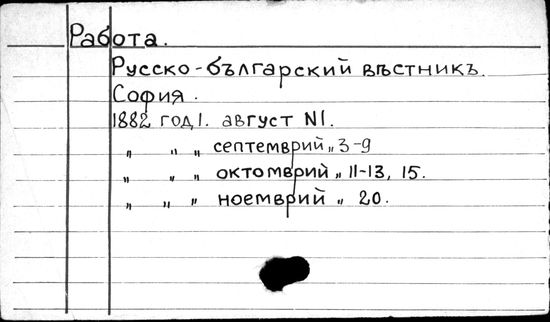 Работа.
Русско-български вѣстникъ.
София.
1882 год I. август N1.
" " " септемврий " 3-9
" " " октомврий " 11-13, 15.
" " " ноемврий " 20.